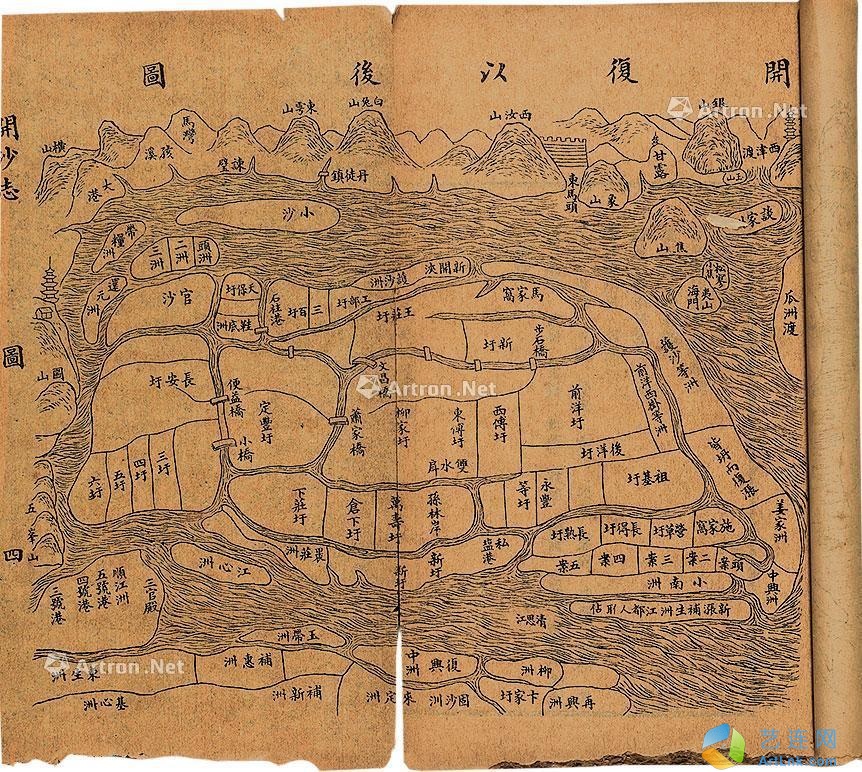 開復以後圖
開沙志
圖
四
銀山
西津渡
玉山
甘露
象山
東馬頭
西汝山
白兔山
東雩山
丹徒鎮
諫壁
馬鞍
孩溪
橫山
大港
談家洲
焦山
松寥山
夷山
海門
瓜洲渡
小沙
帶糧洲
三洲
二洲
頭洲
還元洲
官沙
天保圩
鞋底洲
石柱港
三百圩
工部圩
護沙洲
新開洪
王莊圩
馬家窩
新圩
步石橋
護沙等洲
前洋西掛等洲
圌山
長安圩
便益橋
定豐圩
小橋
文昌橋
蕭家橋
柳家圩
東傅圩
西傅圩
前洋圩
後洋圩
便水庄
六圩
五圩
四圩
三圩
下莊圩
倉下圩
萬壽圩
孫林岸
永豐等圩
祖基圩
姜家洲
施家窩
營草圩
長得圩
長熟圩
私鹽港
新圩
新圩
畏莊洲
江心洲
五峯山
頭案
二案
三案
四案
五案
中興洲
小南洲
新漲補生洲江都人冒佔
清思江
三官殿
順江洲
五號港
四號港
三號港
玉帶洲
補惠洲
東生洲
基心洲
補新洲
來定洲
固沙洲
復興中洲
柳洲
卞家圩
再興洲
Artron.Net
Artron.Net
Artron.Net
艺连网
Artlnk.com